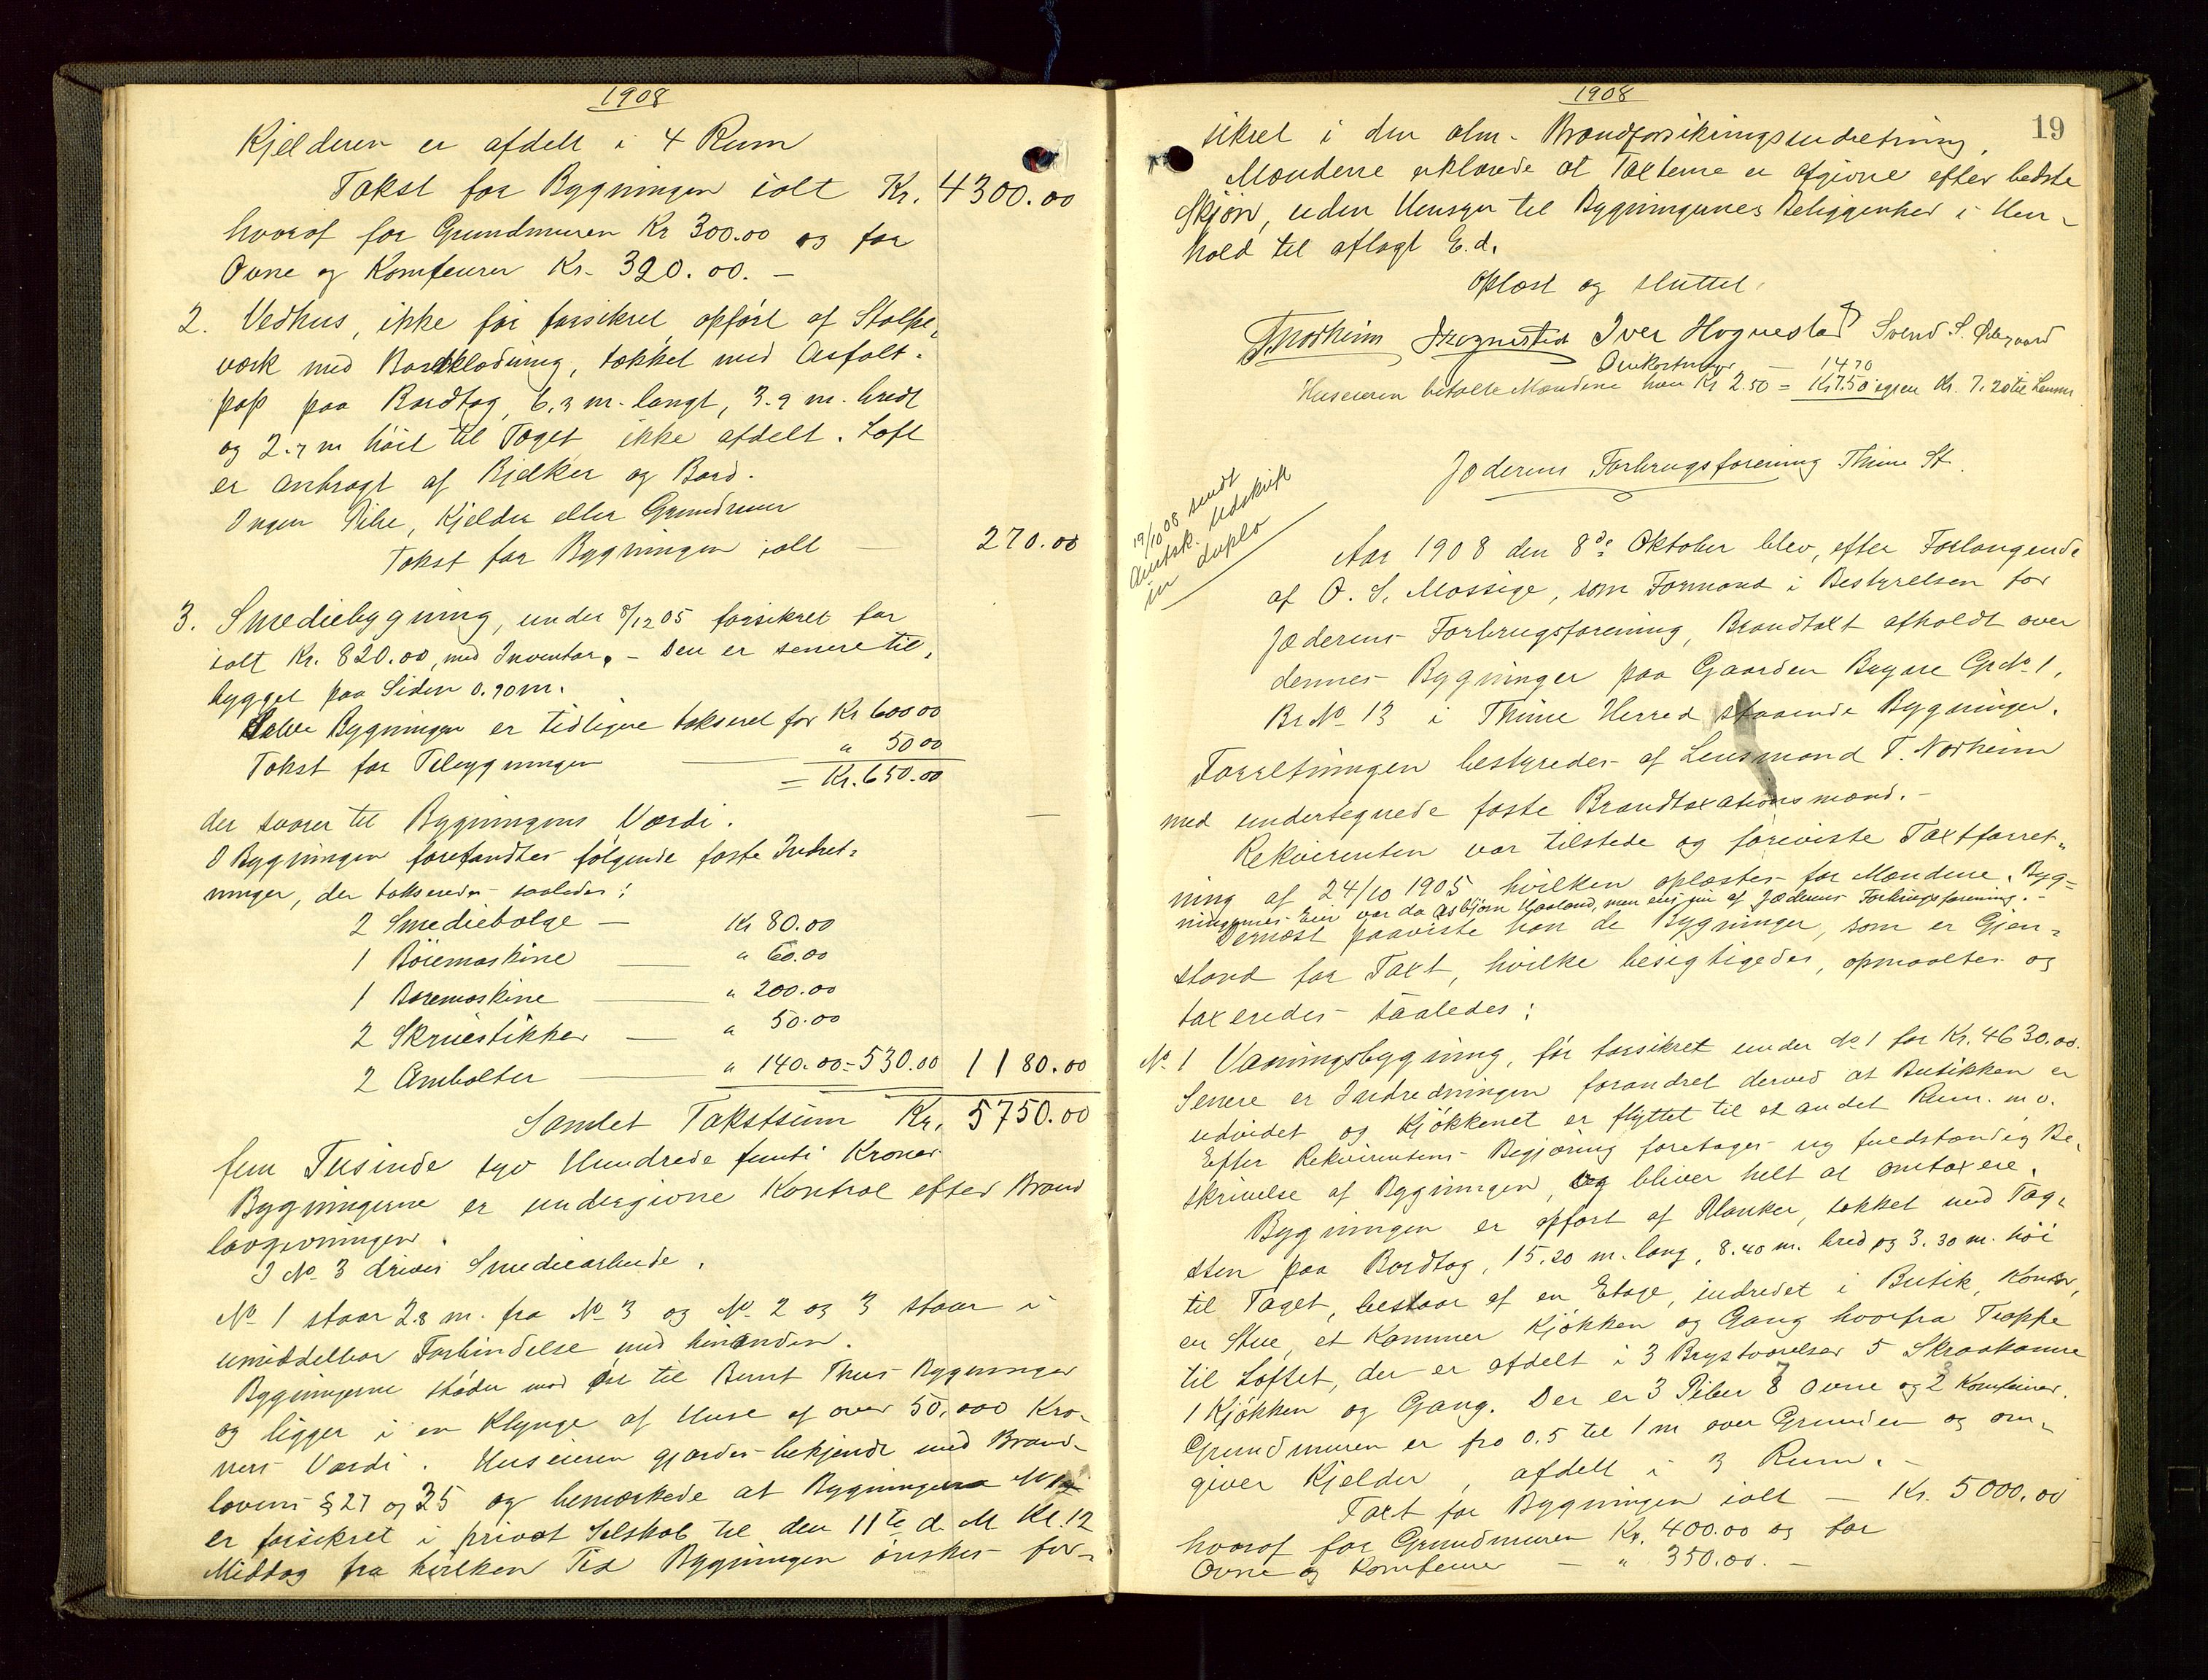 1908
Kjelderen er afdelt i 4 Rum
Takst for Bygningen ialt Kr. 4300.00
hvoraf for Grundmuren Kr 300.00 og for
Ovne og Komfeurer Kr. 320.00. –
2. Vedhus, ikke før forsikret opført af Stolpe-
værk med Bordklædning, tækket med Asfalt-
pap paa Bordtag, 6.3 m. langt, 3.9 m. bredt
og 2.7 m høit til Taget ikke afdelt. Loft
er anbragt af Bjelker og Bord.
Ingen Pibe, Kjelder eller Grundmur
Takst for Bygningen ialt — 270.00
3. Smediebygning, under 8/12 05 forsikret for
ialt Kr. 820.00, med Inventar. – Den er senere til-
bygget paa Siden 0.90 m.
Selve Bygningen er tidligere takseret for Kr 600 00
Takst for Tilbygningen — " 50 00
= Kr. 650.00
der svarer til Bygningens Værdi. —
I Bygningen forefandtes følgende faste Indret-
ninger, der takseredes saaledes:
2 Smediebælge — Kr 80.00
1 Böiemaskine — " 60.00
1 Boremaskine — " 200.00
2 Skruestikker — " 50.00
2 Ambolter — " 140.00 = 530.00 1180.00
Samlet Takstsum Kr. 5750.00
fem Tusinde syv Hundrede femti Kroner
Bygningerne er undergivne Kontrol efter Brand
lovgivningen.
I No. 3 drives Smediearbeide.
No. 1 staar 2.8 m. fra No 3 og No. 2 og 3 staar i
umiddelbar Forbindelse med hinanden.
Bygningerne støder mod Øst til Bernt Thus Bygninger
og ligger i en Klynge af Huse af over 50,000 Kro-
ners Værdi. Huseieren gjordes bekjendt med Brand-
lovens § 27 og 35 og bemærkede at Bygningerne
er forsikret i privat Selskab til den 11te d. M. Kl. 12
Middag fra hvilken Tid Bygningen ønskes for-
1908
19
sikret i den alm. Brandforsikringsindretning.
Mændene erklærede at Taxterne er afgivne efter bedste
Skjøn, uden Hensyn til Bygningernes Beliggenhed i Hen-
hold til aflagt Ed.
Oplæst og sluttet.
T Norheim Iver Hognestad Svend S.
Omkostninger — 1470
Huseieren betalte Mændene hver Kr 2.50 = Kr 7.50 og Kr. 7.20 til Lensm
Jæderens Forbrugsforening Thime St.
19/10 08 sendt
Amtsk. Udskrift
in duplo
Aar 1908 den 8de Oktober blev, efter Forlangende
af O. S. Mossige, som Formand i Bestyrelsen for
Jæderens Forbrugsforening, Brandtaxt afholdt over
dennes Bygninger paa Gaarden Bryne GNo 1,
BrNo 13 i Thime Herred staaende Bygninger.
Forretningen bestyredes af Lensmand T. Norheim
med undertegnede faste Brandtaxationsmænd. –
Rekvirenten var tilstede og foreviste Taxtforret-
ning af 24/10 1905, hvilken oplæstes for Mændene. Byg-
ningernes Eier var da Asbjørn Haaland, men eies nu af Jæderens Forbrugsforening. –
Dernæst paaviste han de Bygninger, som er Gjen-
stand for Taxt, hvilke besigtigedes, opmaaltes og
taxeredes saaledes:
No. 1 Vaaningsbygning, før forsikret under No 1 for Kr. 4630.00.
Senere er Indredningen forandret derved at Butikken er
udvidet og Kjøkkenet er flyttet til et andet Rum. m.v.
Efter Rekvirentens Begjæring foretages ny fuldstændig Be-
skrivelse af Bygningen, og bliver helt at omtaxere.
Bygningen er opført af Planker, tækket med Tag-
sten paa Bordtag, 15.20 m. lang, 8.40 m. bred og 3.30 m. høi
til Taget, bestaar af en Etage, indredet i Butik, Kontor,
en Stue, et Kammer Kjøkken og Gang hvorfra Trappe
til Loftet, der er afdelt i 3 Brystværelser 5 Skraakamre
1 Kjøkken og Gang. Der er 3 Piber 8 Ovne og 2 Komfeurer.
Grundmuren er fra 0.5 til 1 m over Grunden og om-
giver Kjelder, afdelt i 3 Rum. –
Taxt for Bygningen ialt — Kr. 5000.00
hvoraf for Grundmuren Kr. 400.00 og for
Ovne og Komfeurer — " 350.00. –